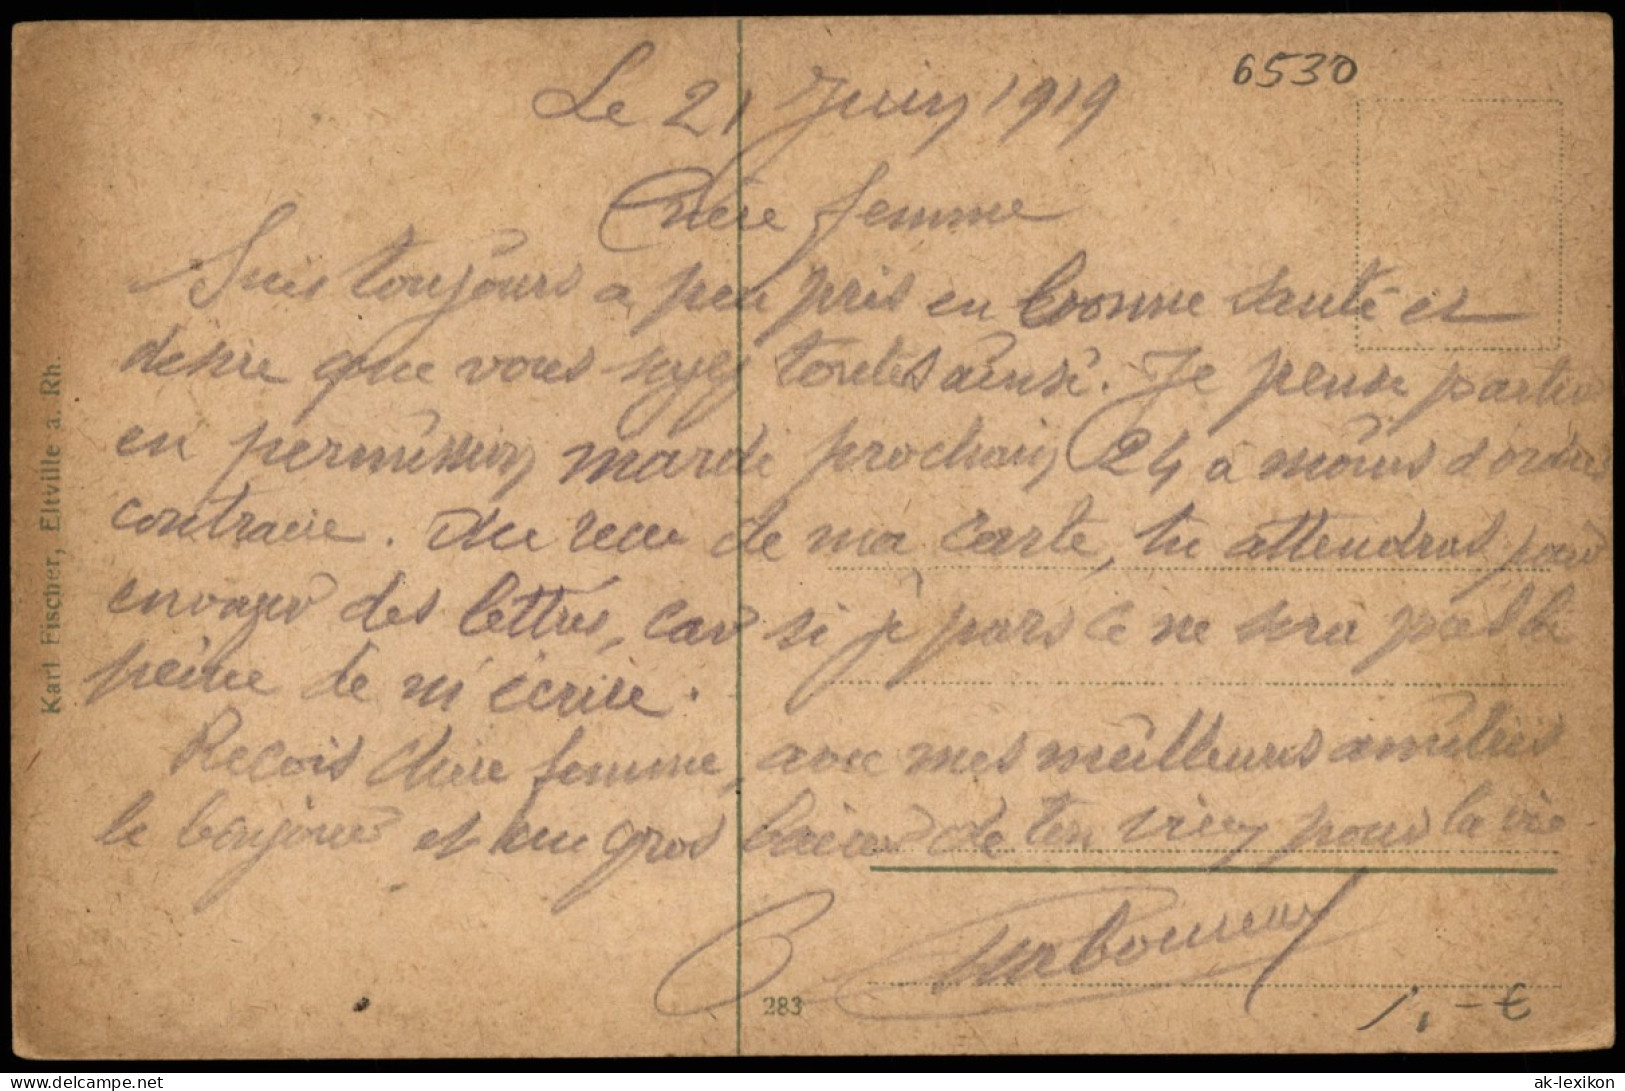 6530
Le 21 Juin 1919
Chère femme
Suis toujours a peu pris en bonne santé et
desire que vous soyez toutes ainsi. Je pense partir
en permission mardi prochain 24 a moins d'ordres
contraire. Au recu de ma carte, tu attendras pour
envoyer des lettres, car si je pars ce ne sera pas la
peine de m'écrire.
Reçois chère femme, avec mes meilleures amitiés
le bonjour et un gros baiser de ton vieux pour la vie
Karl Fischer, Eltville a. Rh.
283
1,-€
ak-lexikon